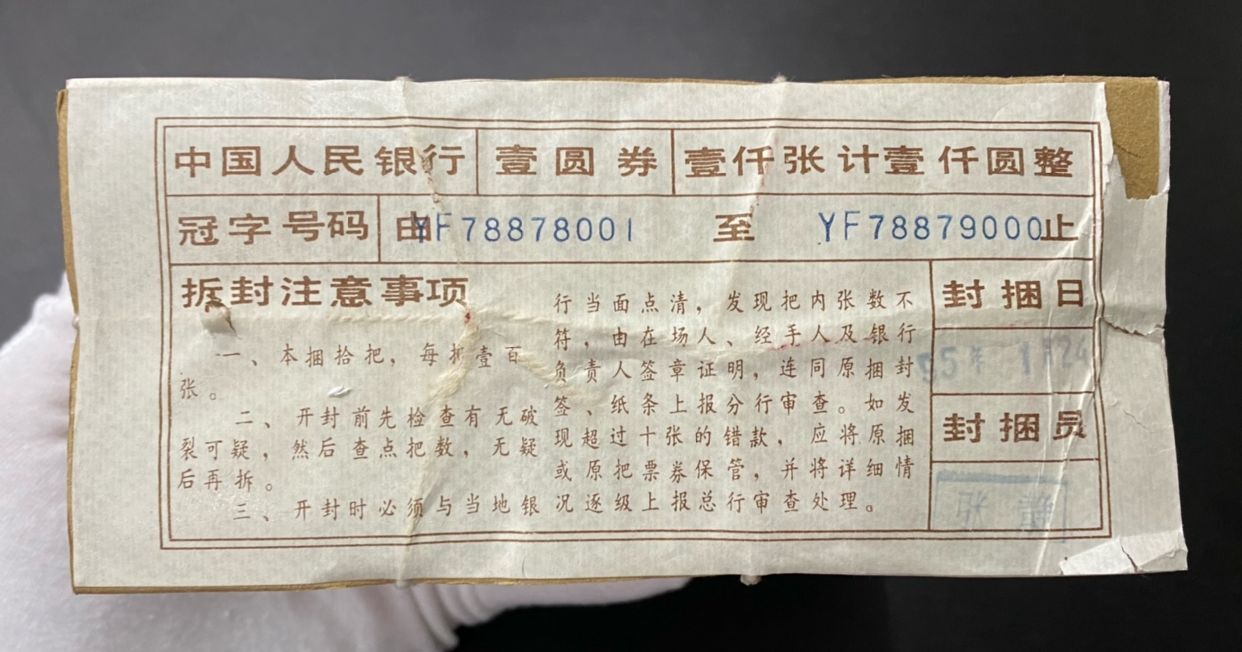 中国人民银行 壹圆券 壹仟张计壹仟圆整
冠字号码 由YF78878001 至 YF78879000止
拆封注意事项
一、本捆拾把，每把壹百
张。
二、开封前先检查有无破
裂可疑，然后查点把数，无疑
后再拆。
三、开封时必须与当地银
行当面点清，发现把内张数不
符，由在场人、经手人及银行
负责人签章证明，连同原捆封
签、纸条上报分行审查。如发
现超过十张的错款，应将原捆
或原把票券保管，并将详细情
况逐级上报总行审查处理。
封捆日
95年 1月24
封捆员
张